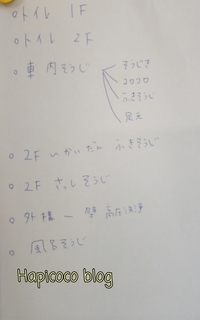 ○トイレ 1F
○トイレ 2F
○車内そうじ
そうじき
コロコロ
ふきそうじ
足元
○2F いかいだん ふきそうじ
○2F さっしそうじ
○外構ー壁高圧洗浄
○風呂そうじ
Hapicoco blog